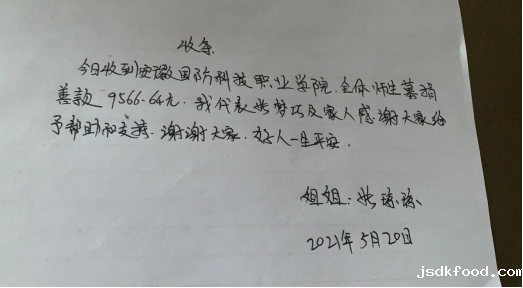 收条
今日收到安徽国防科技职业学院全体师生募捐
善款9566.64元.我代表张梦巧及家人感谢大家给
予帮助和支持.谢谢大家.好人一生平安.
姐姐:张琼琼
2021年5月20日
jsdkfood.com